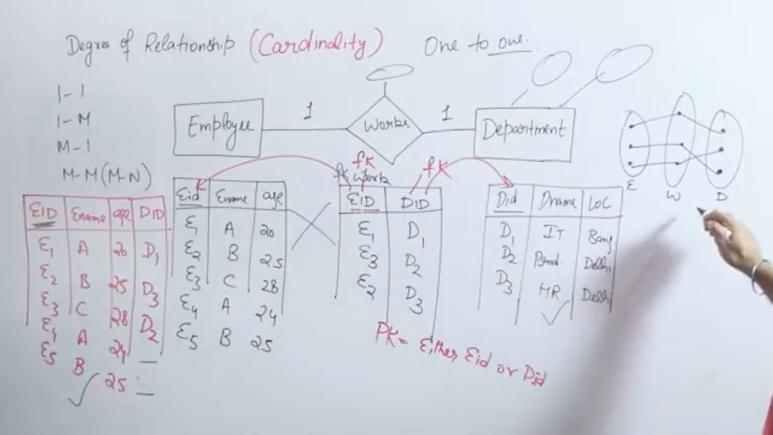 Degree of Relationship (Cardinality) One to one.
1-1
1-M
M-1
M-M (M-N)
Employee 1 Works 1 Department
E W D
fK fK
fK work
EID Ename age DID
E1 A 20 D1
E2 B 25 D3
E3 C 28 D2
E4 A 24 —
E5 B 25 —
Eid Ename age
E1 A 20
E2 B 25
E3 C 28
E4 A 24
E5 B 25
EID DID
E1 D1
E3 D2
E2 D3
Did Dname LOC
D1 IT Bang
D2 Prod. Delhi
D3 HR Delhi
PK = Either Eid or Did